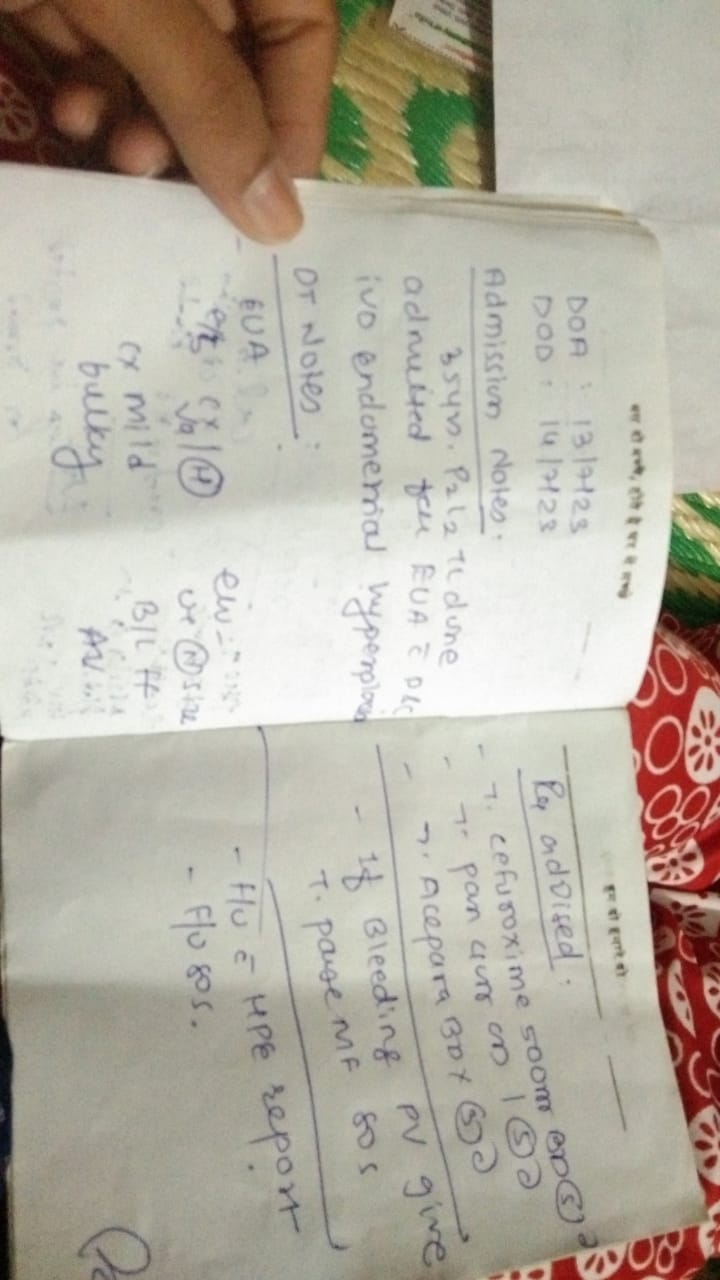 DOA : 13/7/23
DOD : 14/7/23
Admission Notes.
35yrs. P2L2 TL done
admitted for EUA c̄ D&C
i/v/o endometrial hyperplasia
OT Notes :
- EUA
P/S Cx/Vg (H)
Cx mild
bulky
P/V -
Ut (N) size
B/L ff
AV
हम दो हमारे दो
Rx advised :
- T. cefuroxime 500mg BD (5) d
- T. pan 40mg OD (5) d
- T. Acepara BD x (5) d
- If Bleeding PV give
T. pause MF SOS
- F/U c̄ HPE report
- F/U SOS.